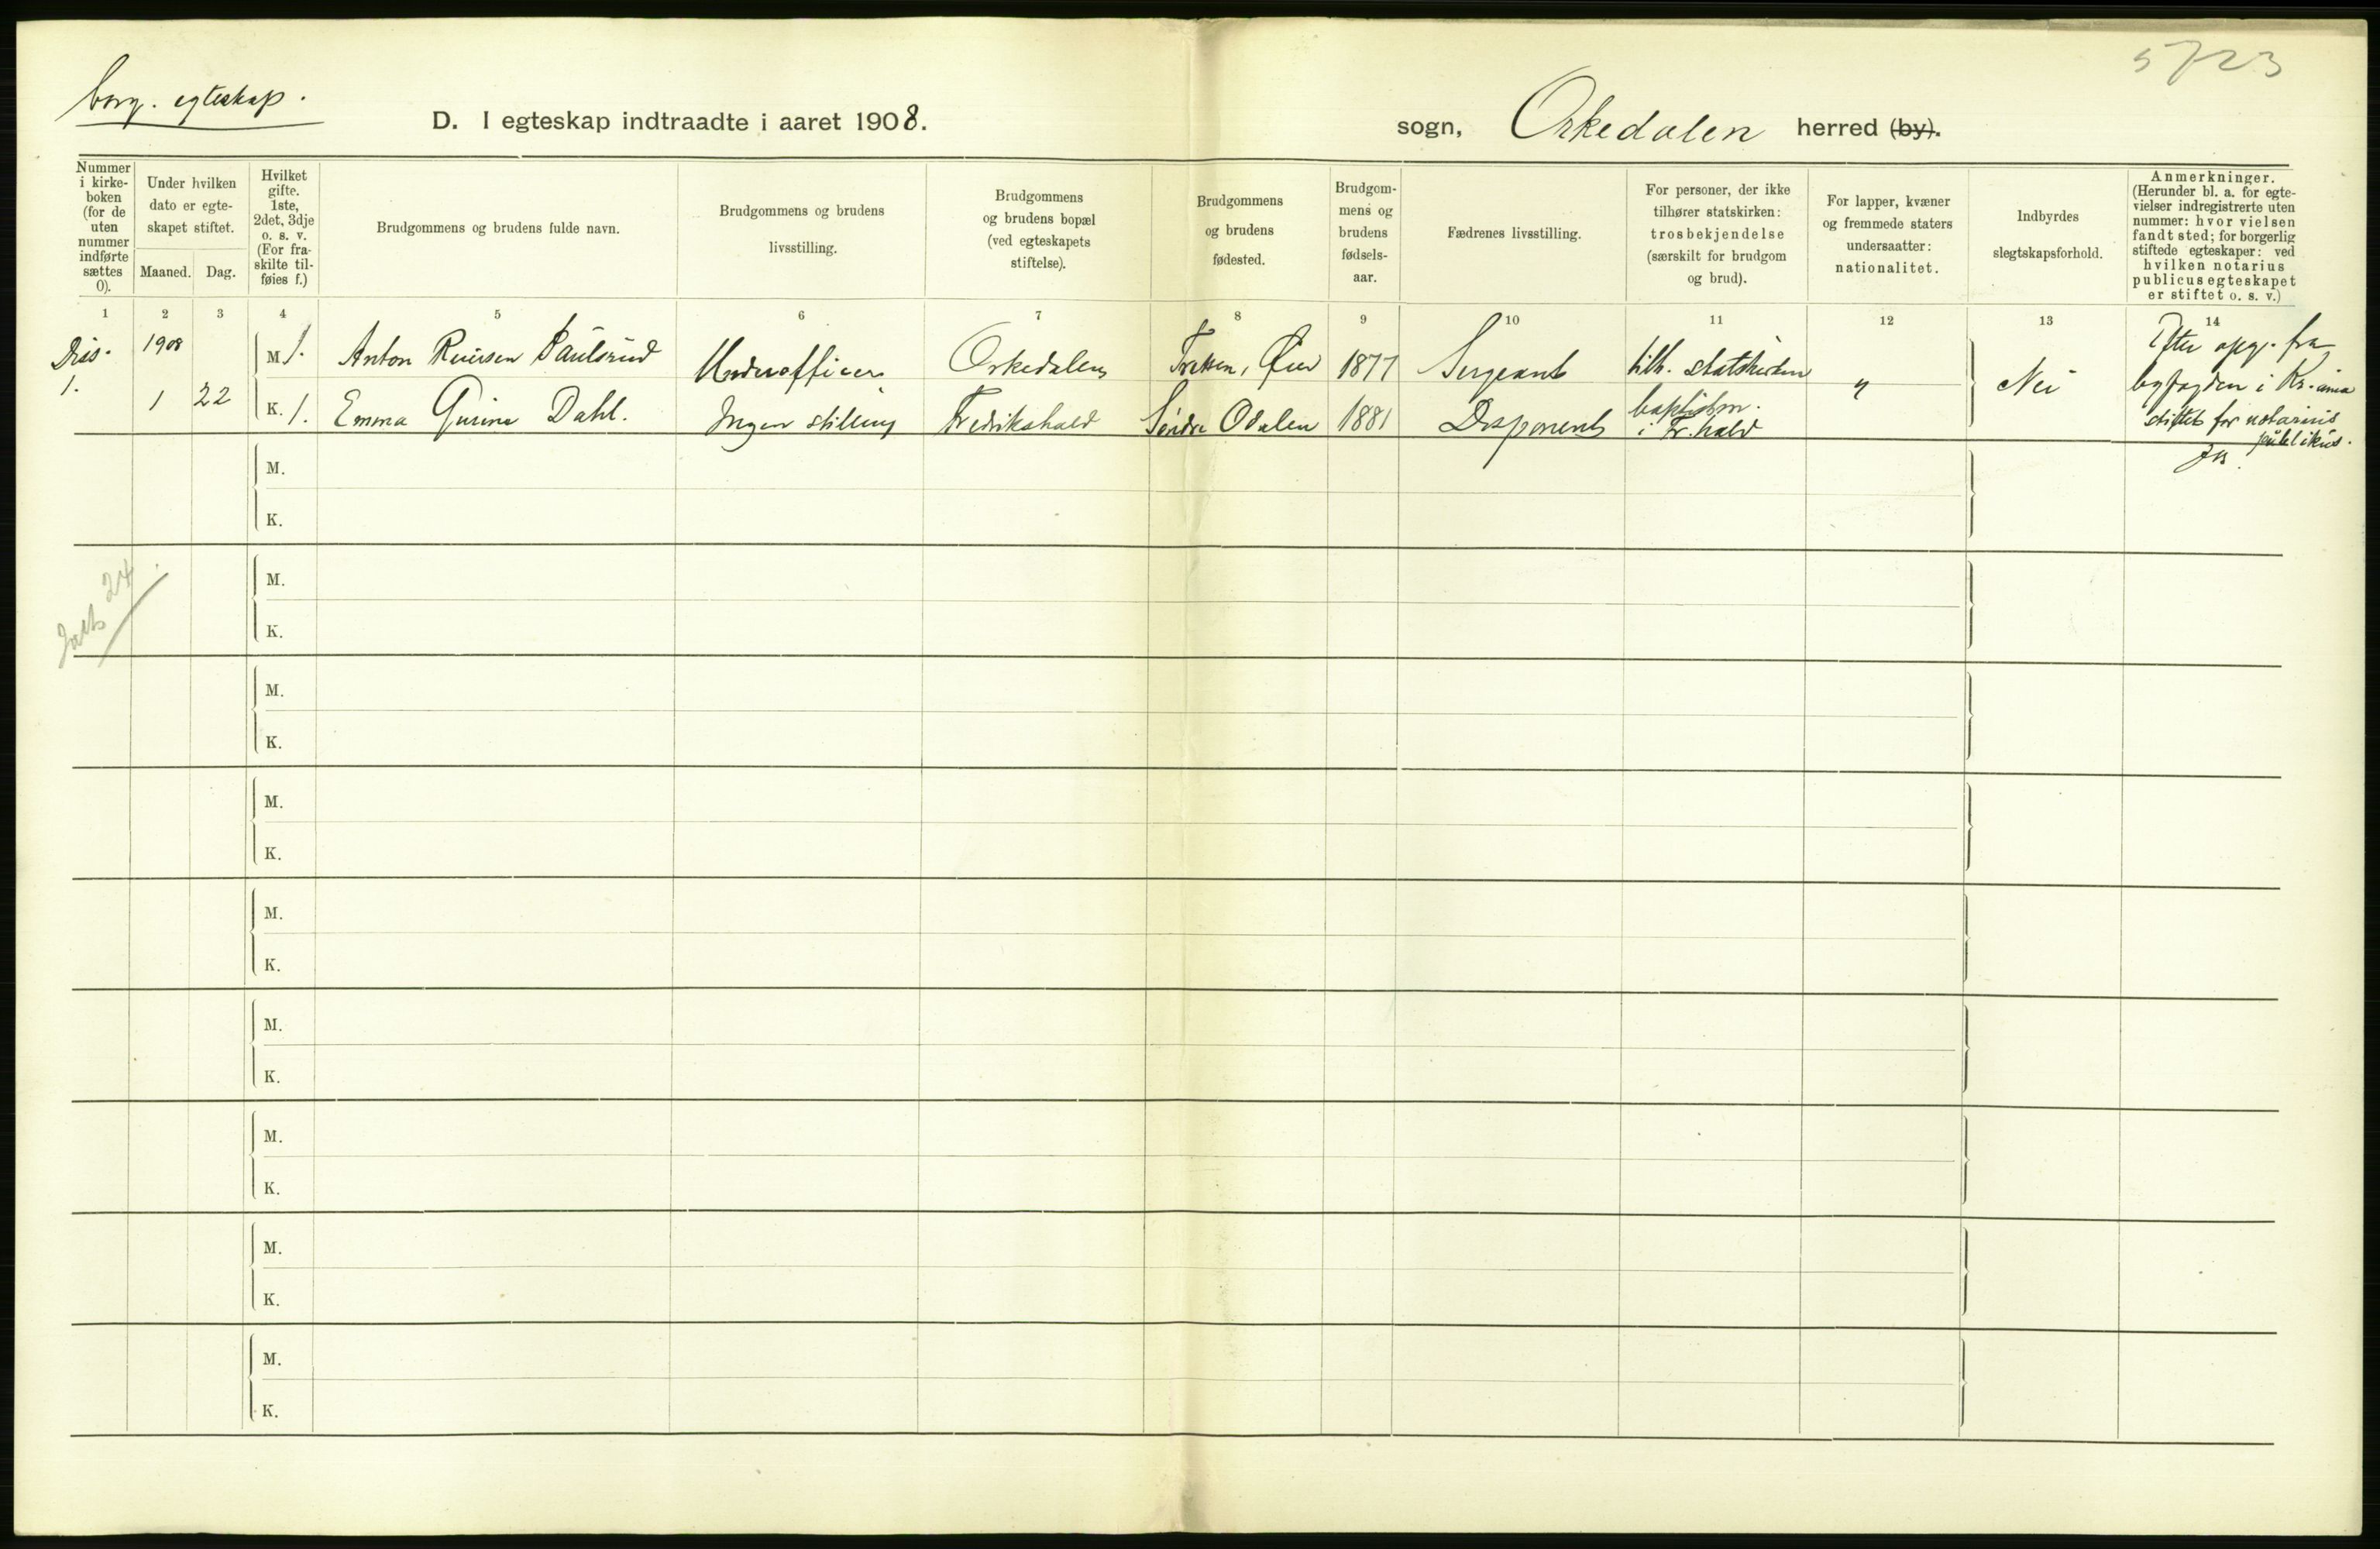 5723
borg. egteskap.
D. I egteskap indtraadte i aaret 1908.
sogn, Orkedalen herred (by).
Nummer i kirke-boken (for de uten nummer indførte sættes 0).
Under hvilken dato er egte-skapet stiftet.
Maaned. Dag.
Hvilket gifte. 1ste, 2det, 3dje o. s. v. (For fra-skilte til-føies f.)
Brudgommens og brudens fulde navn.
Brudgommens og brudens livsstilling.
Brudgommens og brudens bopæl (ved egteskapets stiftelse).
Brudgommens og brudens fødested.
Brudgom-mens og brudens fødsels-aar.
Fædrenes livsstilling.
For personer, der ikke tilhører statskirken: trosbekjendelse (særskilt for brudgom og brud).
For lapper, kvæner og fremmede staters undersaatter: nationalitet.
Indbyrdes slegtskapsforhold.
Anmerkninger. (Herunder bl. a. for egte-vielser indregistrerte uten nummer: hvor vielsen fandt sted; for borgerlig stiftede egteskaper: ved hvilken notarius publicus egteskapet er stiftet o. s. v.)
1 2 3 4 5 6 7 8 9 10 11 12 13 14
Dis. 1.
1908
1 22
M 1. Anton Paulsrud Underofficer Orkedalen Tretten, Øier 1877 Sergeant tilh. statskirken " Nei
K. 1. Emma Gurine Dahl. Ingen stilling Fredrikshald Søndre Odalen 1881 Disponent baptistm. i Fr.hald
Efter opg. fra
byfogden i Kr.ania
stiftet for notarius
publikus.
M.
K.
24.
M.
K.
M.
K.
M.
K.
M.
K.
M.
K.
M.
K.
M.
K.
M.
K.